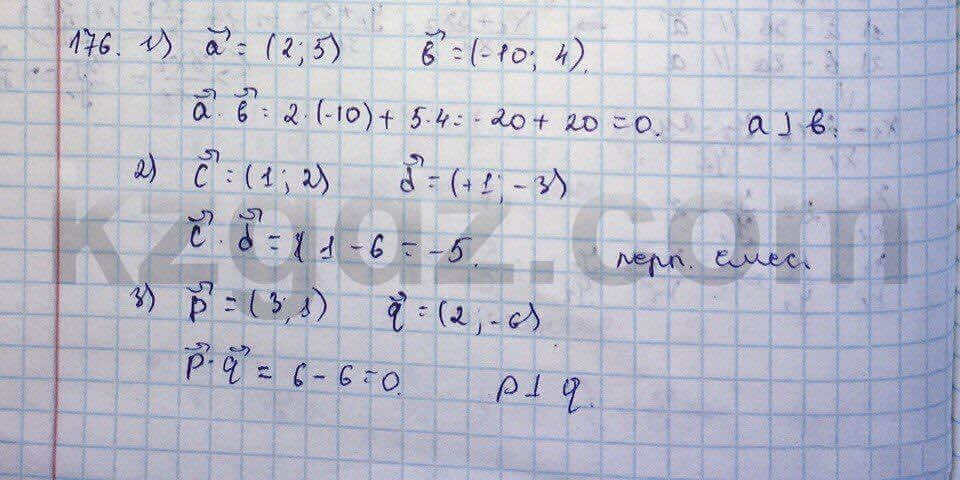 176. 1) a⃗ = (2; 5) в⃗ = (-10; 4).
a⃗ · в⃗ = 2·(-10) + 5·4 = -20 + 20 = 0. a ⊥ в.
2) c⃗ = (1; 2) d⃗ = (+1; -3)
c⃗ · d⃗ = 1 - 6 = -5. перп. емес.
3) p⃗ = (3; 1) q⃗ = (2; -6)
p⃗ · q⃗ = 6 - 6 = 0. p ⊥ q.
kzgdz.com